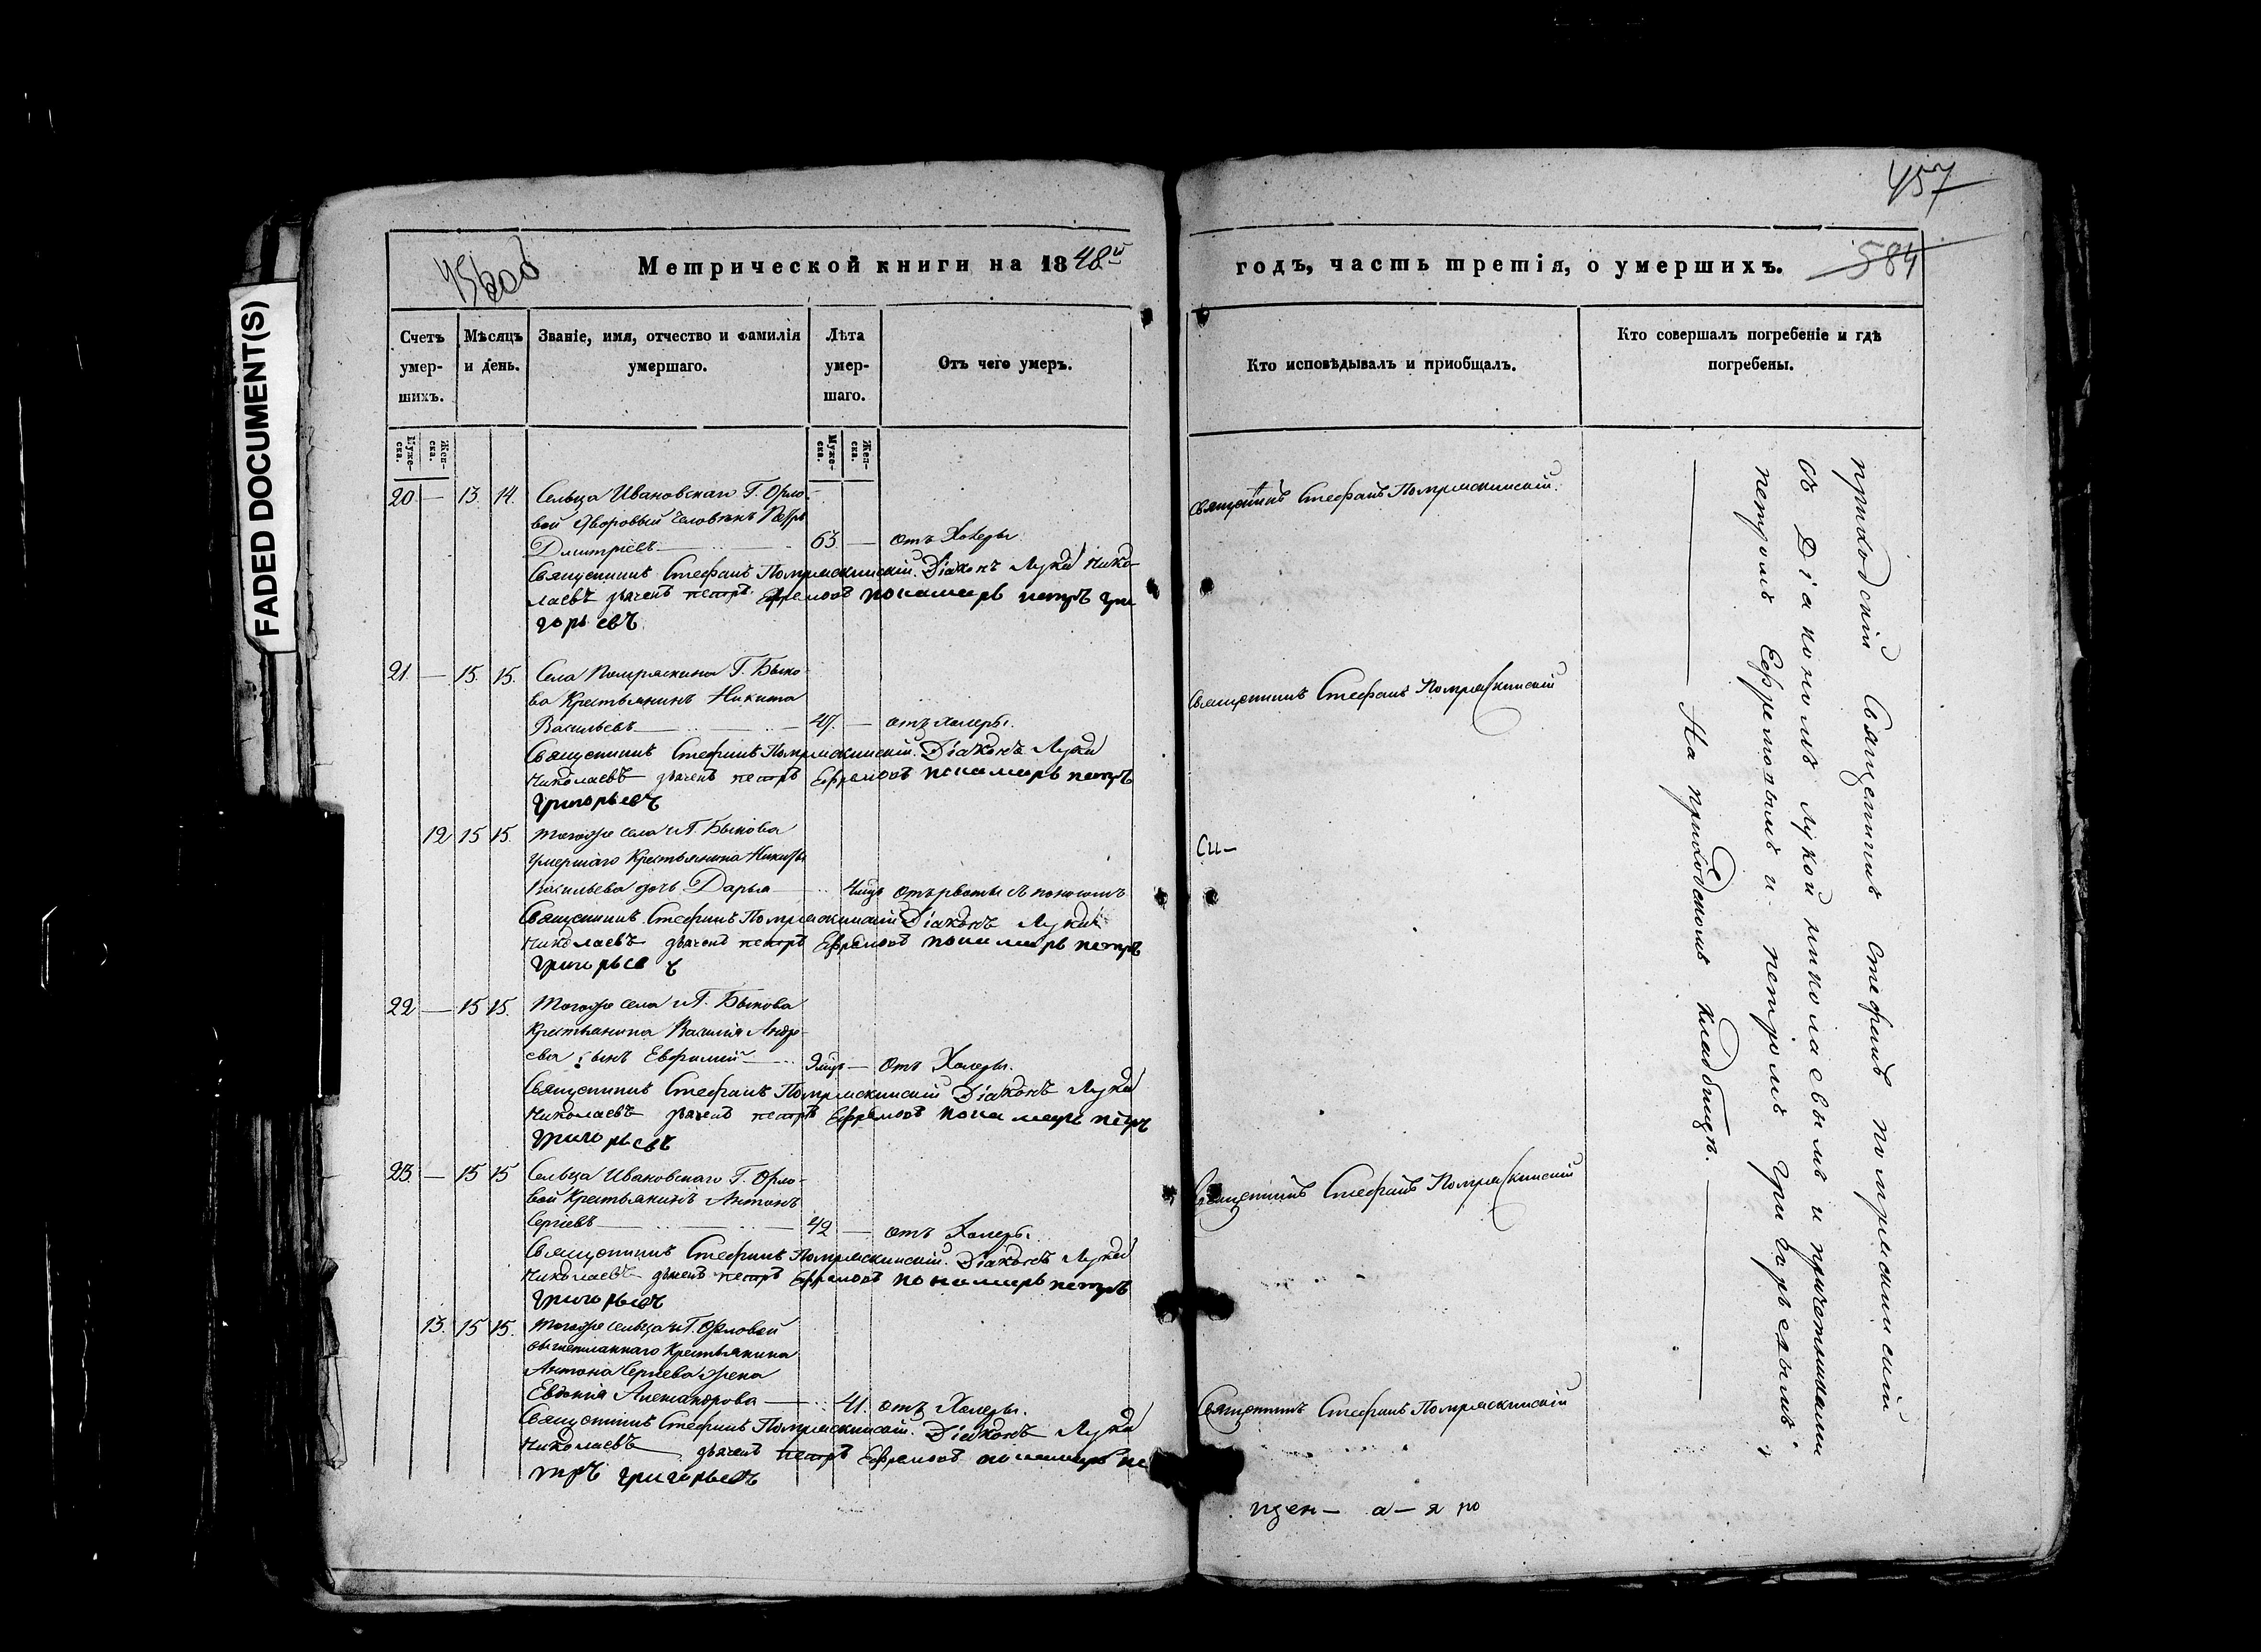 FADED DOCUMENT(S)
457
584
Метрической книги на 1848й
годъ, часть третія, о умершихъ.
Счетъ умер-шихъ.
Мѣсяцъ и день.
Званіе, имя, отчество и фамилія умершаго.
Лѣта умер-шаго.
Отъ чего умеръ.
Кто исповѣдывалъ и пріобщалъ.
Кто совершалъ погребеніе и гдѣ погребены.
Муже-ска.
Жен-ска.
Муже-ска.
Жен-ска.
20 — 13. 14. Сельца Ивановскаго Г. Орло-
вой Дворовый Человѣкъ Петръ
Дмитріевъ 63 — отъ Холеры.
Священникъ Стефанъ Помряскинскій
Священникъ Стефанъ Помряскинскій. Діаконъ Лука Нико-
лаевъ дьячекъ петръ Ефремовъ пономарь петръ гри
горьевъ
21. — 15. 15. Села Помряскина Г. Быко-
ва Крестьянинъ Никита
Васильевъ 47. — отъ холеры.
Священникъ Стефанъ Помряскинскій
Священникъ Стефанъ Помряскинскій. Діаконъ Лука
Николаевъ дьячекъ петръ Ефремовъ пономарь петръ
григорьевъ
12 15 15. Тогоже села и Г. Быкова
умершаго Крестьянина Никиты
Васильева дочь Дарья отъ рвоты съ поносомъ
Священникъ Стефанъ Помряскинскій Діаконъ Лука
Николаевъ дьячекъ петръ Ефремовъ пономарь петръ
григорьевъ
22 — 15 15. Тогоже села и Г. Быкова
Крестьянина Василія Андре-
ева сынъ Евфимій — Отъ Холеры.
Священникъ Стефанъ Помряскинскій Діаконъ Лука
Николаевъ дьячекъ петръ Ефремовъ пономарь петръ
григорьевъ
23. — 15 15 Сельца Ивановскаго Г. Орло-
вой Крестьянинъ Антонъ
Сергіевъ 42 — отъ Холеры.
Священникъ Стефанъ Помряскинскій
Священникъ Стефанъ Помряскинскій. Діаконъ Лука
Николаевъ дьячекъ петръ Ефремовъ пономарь петръ
григорьевъ
13. 15 15. Тогоже сельца и Г. Орловой
Крестьянина
Антона Сергіева жена
Евдокія Александрова 41. отъ Холеры.
Священникъ Стефанъ Помряскинскій
Священникъ Стефанъ Помряскинскій. Діаконъ Лука
Николаевъ дьячекъ петръ Ефремовъ пономарь пе
тръ григорьевъ
приходскій Священникъ Стефанъ помряскинскій
съ Діакономъ лукой николаевымъ и причетниками
петромъ Ефремовымъ и петромъ григорьевымъ
На приходскомъ кладбищѣ.